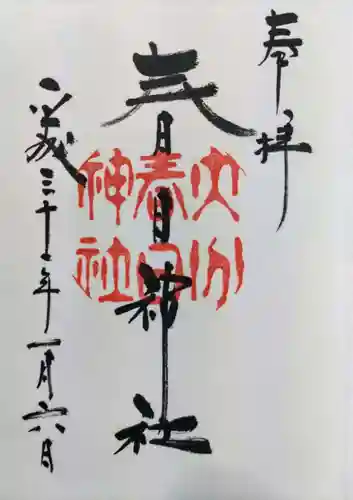 奉拝
春日神社
平成三十一年一月六日
大分
春日
神社